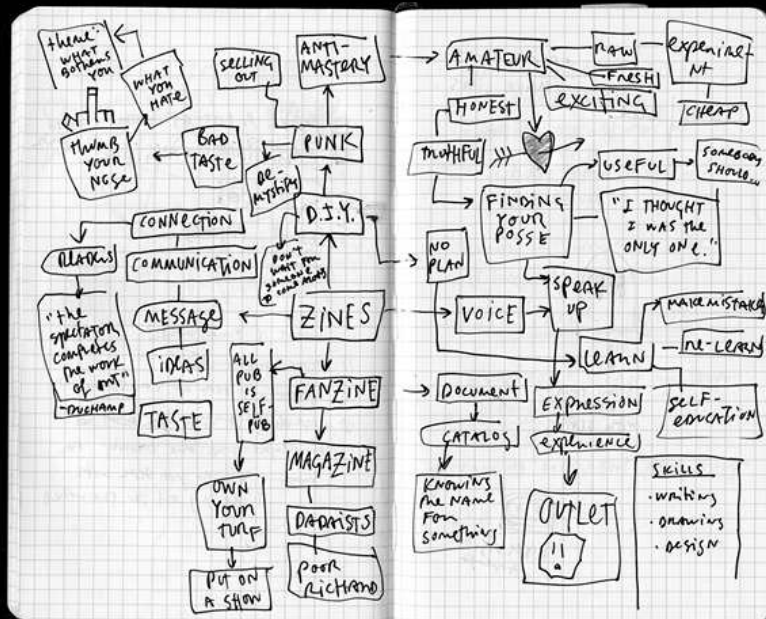 theme:
WHAT
BOTHERS
YOU
WHAT
YOU
HATE
THUMB
YOUR
NOSE
BAD
TASTE
SELLING
OUT
ANTI-
MASTERY
PUNK
DE-
MYSTIFY
D.I.Y.
DON'T
WAIT FOR
SOMEONE
TO
COME ALONG
CONNECTION
READERS
COMMUNICATION
"the
SPECTATOR
COMPLETES
the WORK
OF ART"
-DUCHAMP
MESSAGE
iDEAS
TASTE
ZiNES
ALL
PUB
IS
SELF-
PUB
FANZiNE
MAGAZiNE
DADAISTS
POOR
RICHARD
OWN
YOUR
TURF
PUT ON
A SHOW
AMATEUR
RAW
expeRiMeNT
FRESH
eXCITING
CHEAP
HONEST
TRUTHFUL
USEFUL
SOMEBODY
SHOULD...
FINDING
YOUR
POSSE
"I THOUGHT
I WAS the
ONLY ONe."
NO
PLAN
VOiCE
SPEAK
UP
MAKE MISTAKES
LEARN
RE-LEARN
SELF-
eDUCATION
DOCUMENT
CATALOG
KNOWING
the NAME
FOR
Something
EXPRESSION
expeRience
OUTLET
SKILLS
· WRiTiNG
· DRAWING
· DeSIGN